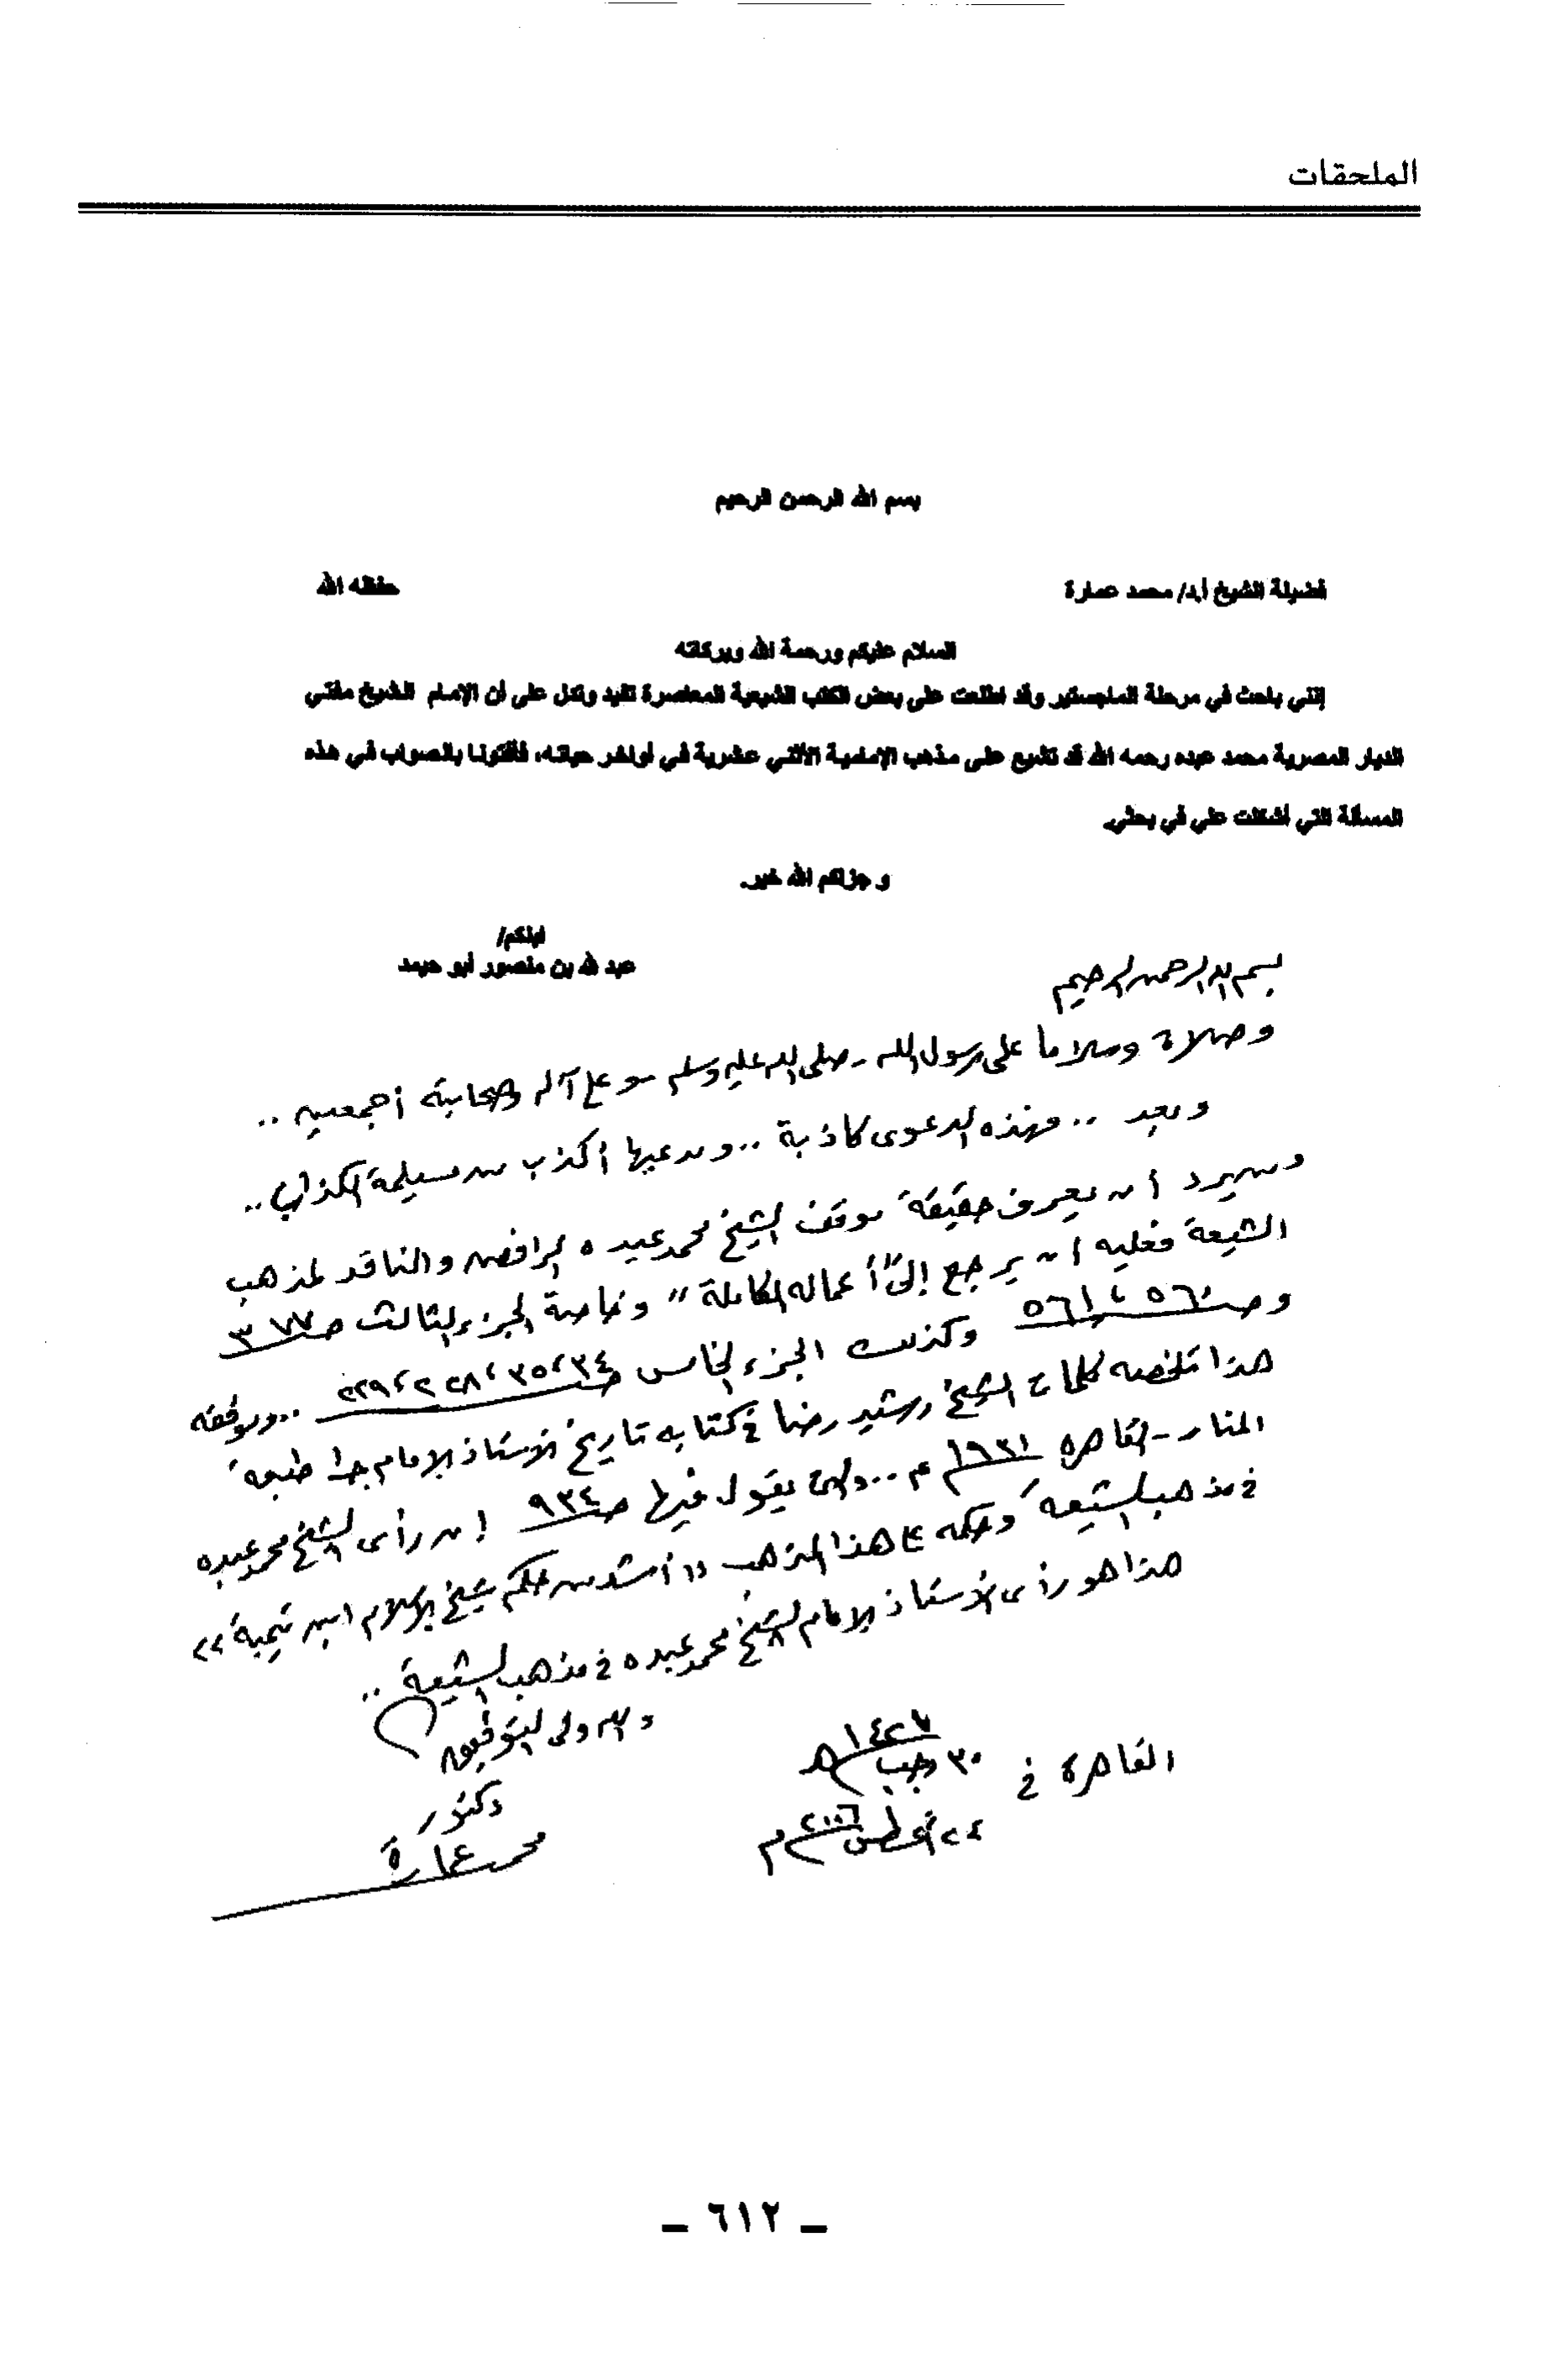 الملحقات
بسم الله الرحمن الرحيم
فضيلة الشيخ أ.د/ محمد عمارة حفظه الله
السلام عليكم ورحمة الله وبركاته
إنني باحث في مرحلة الماجستير وقد اطلعت على بعض الكتب الشيعية المعاصرة تفيد وتدل على أن الإمام الشيخ مفتي
الديار المصرية محمد عبده رحمه الله قد تشيع على مذهب الإمامية الأثني عشرية في أواخر حياته، فأفتونا بالصواب في هذه
المسألة التي أشكلت علي في بحثي.
و جزاكم الله خير.
ابنكم/
عبد لله بن منصور أبو حيمد
بسم الله الرحمن الرحيم
وصلاة وسلاما على رسول الله - صلى الله عليه وسلم - وعلى آله وصحابته أجمعين ..
وبعد .. فهذه الدعوى كاذبة .. ومدعيها أكذب من مسيلمة الكذاب ..
ومن يرد أن يعرف حقيقة موقف الشيخ محمد عبده الرافض والناقد لمذهب
الشيعة فعليه أن يرجع إلى "أعماله الكاملة" وخاصة الجزء الثالث ص ٣٧٧
وص ٥٦٠، ٥٦١ وكذلك الجزء الخامس ص ٣٤، ٣٥، ٢٢٨، ٢٢٩ .. وموقفه
هذا تلخصه كلمات الشيخ رشيد رضا في كتابه تاريخ الأستاذ الإمام جـ١ طبعة
المنار - القاهرة ١٩٣١ م .. والتي يقول فيها ص ٩٣٤ إن رأى الشيخ محمد عبده
في مذهب الشيعة وحكمه على هذا المذهب "أشد من حكم شيخ الإسلام ابن تيمية"
هذا هو رأى الأستاذ الإمام الشيخ محمد عبده في مذهب الشيعة ..
والله ولى التوفيق
القاهرة في ٣٠ رجب ١٤٢٧ هـ
٢٤ أغسطس ٢٠٠٦ م
دكتور
محمد عمارة
ـ ٦١٢ ـ